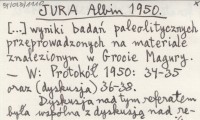 JURA Albin 1950.
[...] wyniki badań paleolitycznych
przeprowadzonych na materiale
znalezionym w Grocie Magury.
— W: Protokół 1950: 34-35
oraz (dyskusja) 36-38.
Dyskusja nad tym referatem
była wspólna z dyskusją nad re-